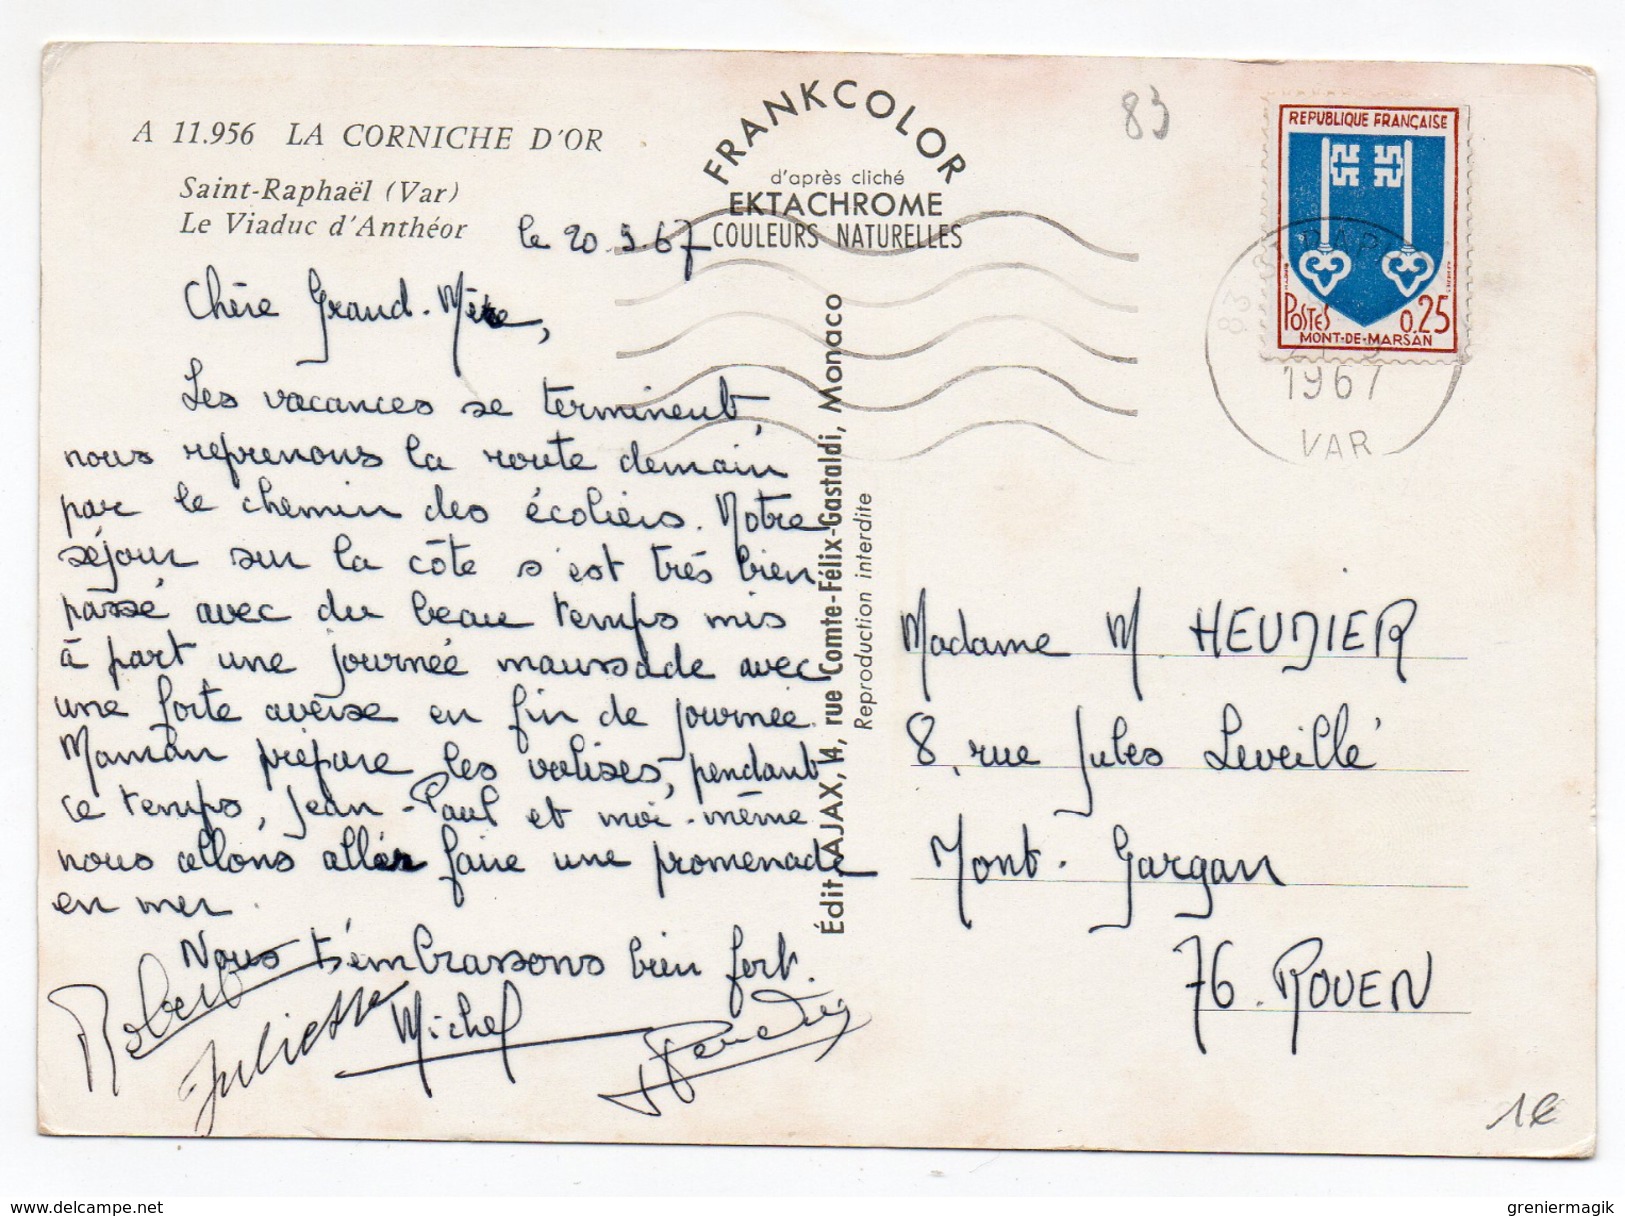 A 11.956 LA CORNICHE D'OR
Saint-Raphaël (Var)
Le Viaduc d'Anthéor
FRANKCOLOR
d'après cliché
EKTACHROME
COULEURS NATURELLES
83
REPUBLIQUE FRANÇAISE
POSTES 0,25
MONT-DE-MARSAN
83
1967
VAR
le 20.9.67
Chère Grand-Mère,
Les vacances se terminent,
nous reprenons la route demain
par le chemin des écoliers. Notre
séjour sur la côte s'est très bien
passé avec du beau temps mis
à part une journée maussade avec
une forte averse en fin de journée.
Maman prépare les valises, pendant
ce temps, Jean-Paul et moi-même
nous allons aller faire une promenade
en mer.
Nous t'embrassons bien fort.
Robert
Juliette
Michel
Édit. AJAX, 14, rue Comte-Félix-Gastaldi, Monaco
Reproduction interdite
Madame M. HEUDIER
8, rue Jules Leveillé
Mont-Gargan
76. ROUEN
1€
delcampe.net
greniermagik